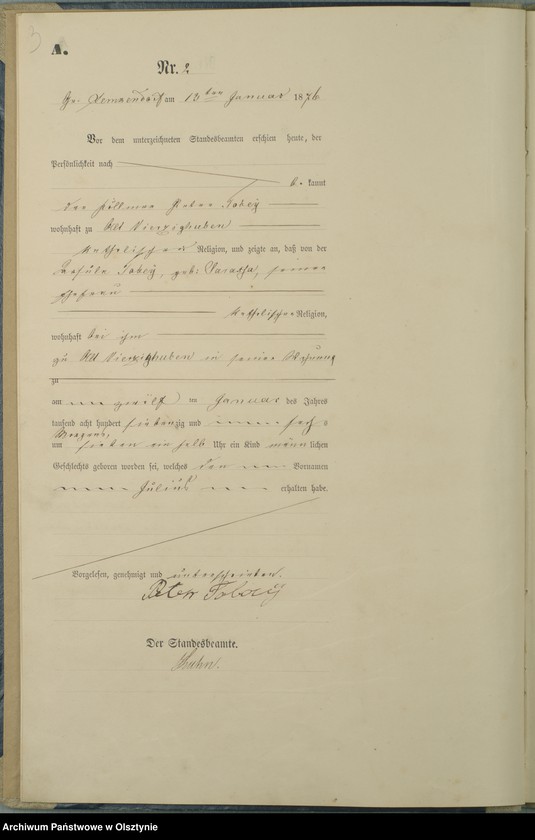 3
A.
Nr. 2
am 13ten Januar 1876
Vor dem unterzeichneten Standesbeamten erschien heute, der
Persönlichkeit nach
be kannt
der Peter
wohnhaft zu Alt Vierzighuben
katholischer Religion, und zeigte an, daß von der
geb: seiner
Ehefrau
katholischer Religion,
wohnhaft bei ihm
zu Alt Vierzighuben in seiner Wohnung
zu
am zwölf ten Januar des Jahres
tausend acht hundert siebenzig und sechs
Morgens,
um sieben ein halb Uhr ein Kind männlichen
Geschlechts geboren worden sei, welches den Vornamen
Julius erhalten habe.
Vorgelesen, genehmigt und unterschrieben.
Peter
Der Standesbeamte.
Archiwum Państwowe w Olsztynie